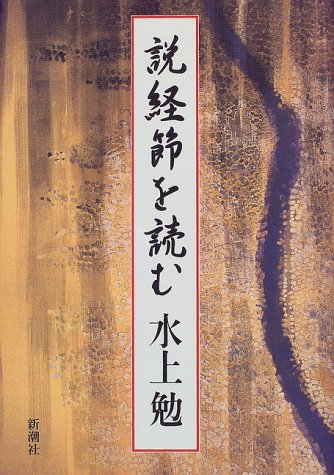 説経節を読む
水上勉
新潮社